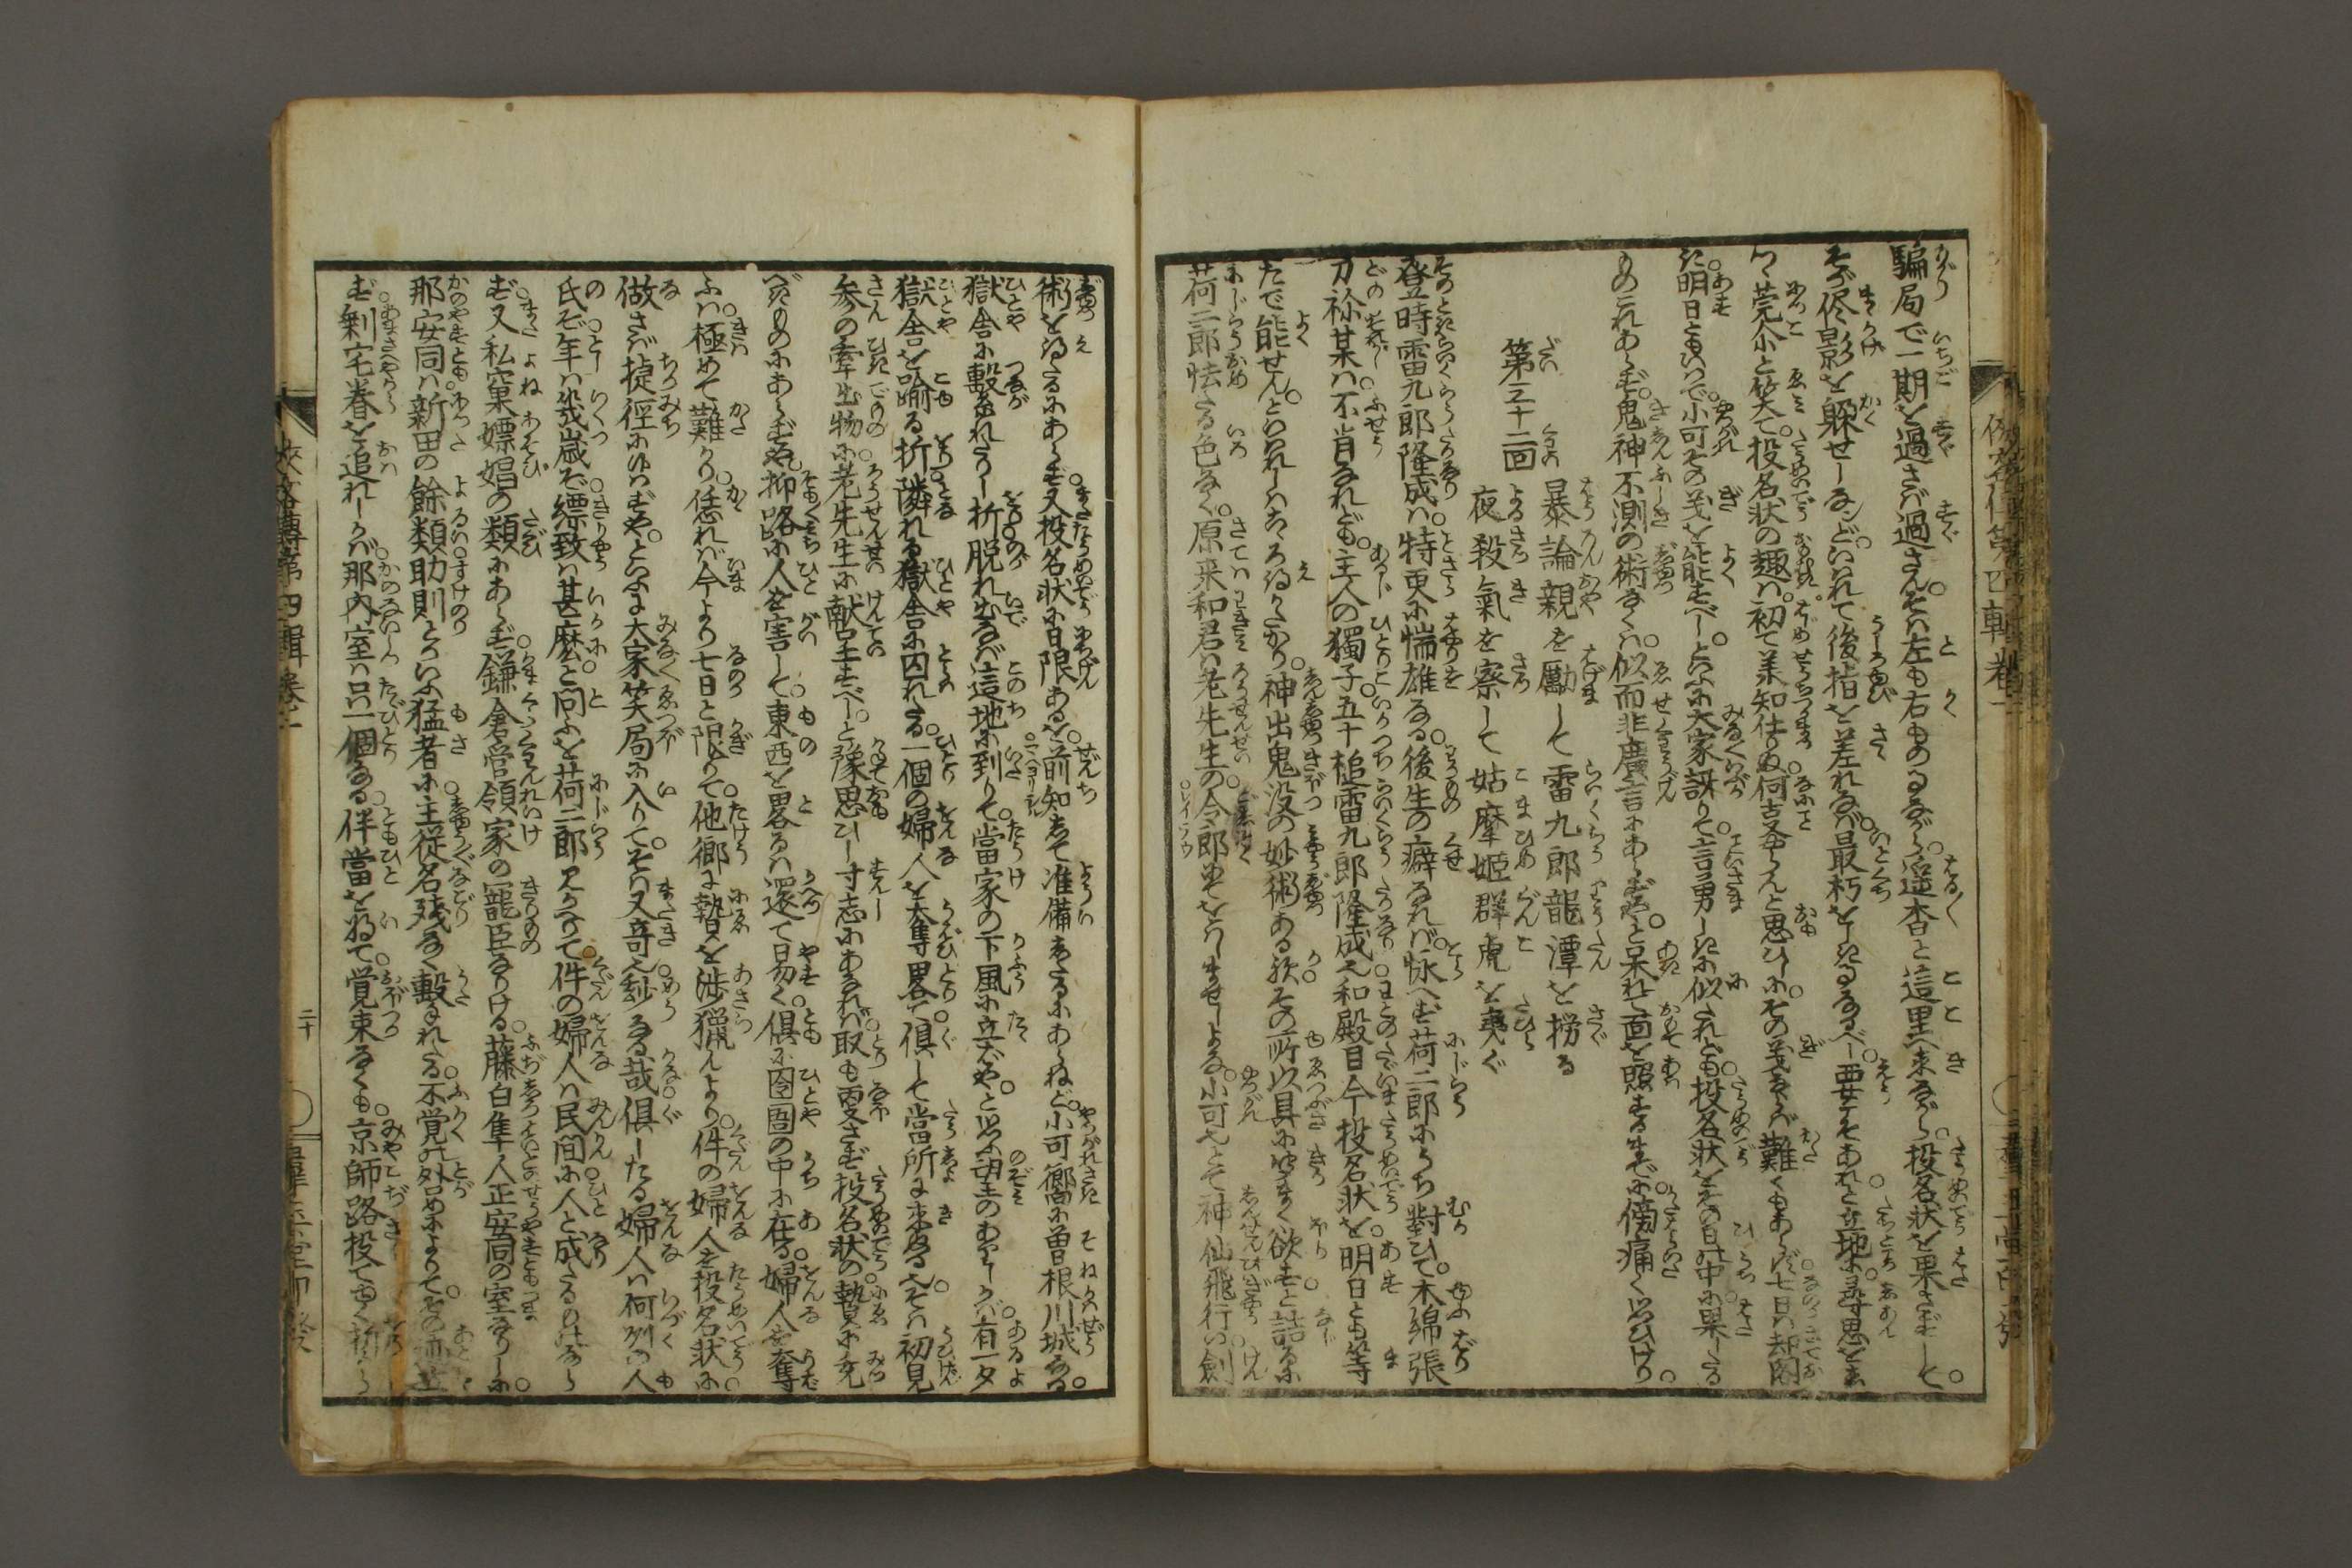 騙局で一期を過さバ過さん。そハ左も右もあるながら。遥杳と這里へ来ながら。投名状を果さずして。
そが侭影を躱せしなンどいハれて後指を差れなバ最朽をしかるべし。要こそあれと立地に尋思をし
つゝ莞尓と笑て。投名状の趣ハ。初て美知仕りぬ。何言やらんと思ひしに。その義ならバ難くもあらず。七日ハ却閣
に。明日ともいハで。小可その義を能すべしといふに大家訝りて。言勇しきに似たれども。投名状をその日の中に果したる
ものこれあらず。鬼神不測の術なくハ。似而非廣言にあらずやと呆れて面を照するまでに。傍痛く思ひけり。
第三十二回
暴論親を勵して雷九郎龍潭を撈る
夜殺氣を察して姑摩姫群虎を夷ぐ
登時雷九郎隆成ハ。特更に惴雄なる。後生の癖なれバ。怺へず荷二郎にうち對ひて。木綿張
刀祢某ハ不肖なれども。主人の獨子五十槌雷九郎隆成也。和殿目今投名状を。明日とも等
たで能せん。といハれしハこゝろ得がたかり。神出鬼没の妙術ある歟。その所以具に聞まく欲すと詰るに
荷二郎怯たる色なく。原来和君ハ老先生の令郎にてをハしませしよな。小可也とて神仙飛行の劍
術を得たるにあらず。又投名状に日限あるを。前知して准備したるにあらねど。小可嚮に曽根川城なる。
獄舎に繋れたりし折脱れ出るが這地に到りて。當家の下風に立ばや。と思ふ望のありしかバ。有一夕
獄舎を踰る折隣れる獄舎に囚れたる。一個の婦人を奪畧て。倶して當所に来ぬる也。そハ初見
参の牽出物に。老先生に献すべし。と豫思ひし寸志にあなれバ。取も更さず投名状の贄に充
べきものにあらずや。抑路に人を害して。東西を畧るハ還て易く。倶に囹圄の中に在る。婦人を奪
ふハ。極めて難かり。恁れバ今より七日と限りて。他郷に贄を渉猟んより。件の婦人を投名状に
做さバ捷徑にゆハずや。といふに大家笑局に入りて。そハ又奇也妙なる哉。倶したる婦人ハ何処の人
氏ぞ年ハ幾歳ぞ。縹致ハ甚麽と問ふを荷二郎見かへりて。件の婦人ハ民間に人と成たるのみなら
ず。又私窠嫖娼の類にあらず。鎌倉管領家の寵臣なりける。藤白隼人正安同の室なりしに。
那安同ハ。新田の餘類助則といふ猛者に。主従名残なく撃れたる。不覚の外咎めによりて。その
ず。剰宅眷を追れしかバ。那内室ハ只一個なる。伴當を将て。覚束なくも。京師路投てゆく